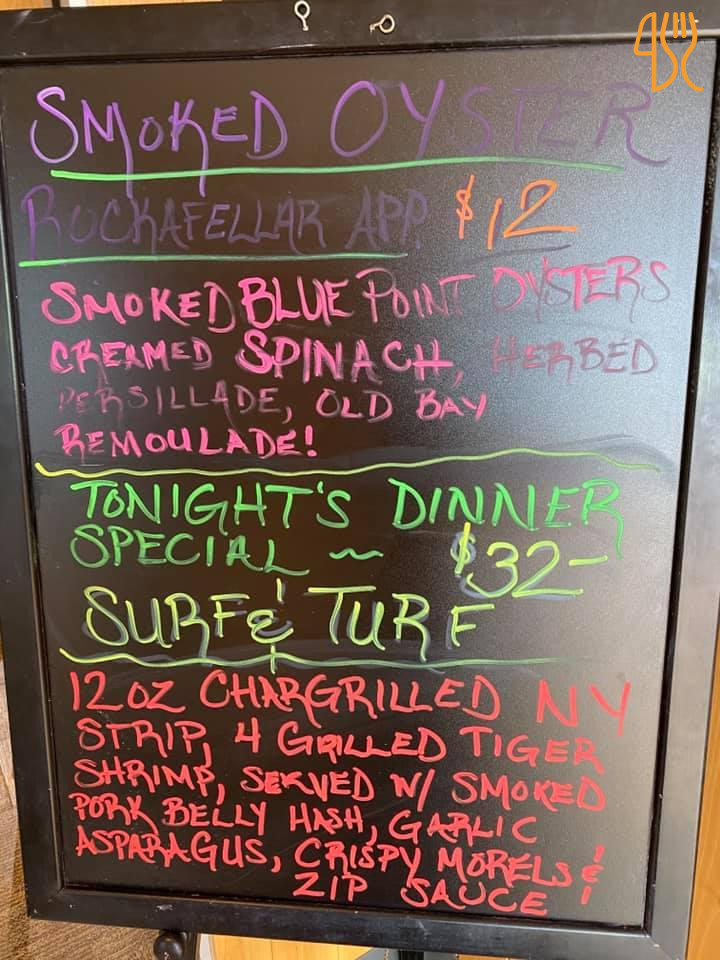 SMOKED OYSTER
ROCKAFELLAR APP. $12
SMOKED BLUE POINT OYSTERS
CREAMED SPINACH, HERBED
PERSILLADE, OLD BAY
REMOULADE!
TONIGHT'S DINNER
SPECIAL ~ $32-
SURF & TURF
12 OZ CHARGRILLED NY
STRIP, 4 GRILLED TIGER
SHRIMP, SERVED W/ SMOKED
PORK BELLY HASH, GARLIC
ASPARAGUS, CRISPY MORELS &
ZIP SAUCE!